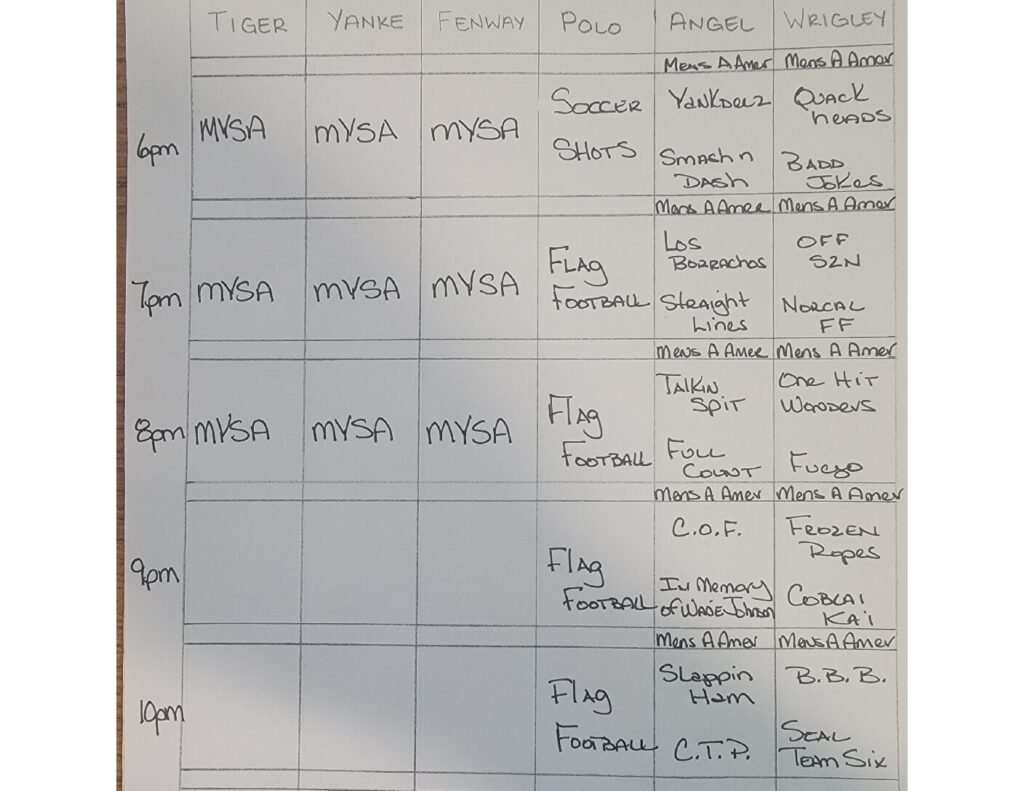 TIGER YANKE FENWAY POLO ANGEL WRIGLEY
Mens A Amer Mens A Amer
6pm MYSA MYSA MYSA SOCCER SHOTS YANKDEEZ SMASH n DASH QUACK HEADS BADD JOKES
Mens A Amer Mens A Amer
7pm MYSA MYSA MYSA FLAG FOOTBALL LOS BORRACHOS STRAIGHT LINES OFF SZN NORCAL FF
Mens A Amer Mens A Amer
8pm MYSA MYSA MYSA FLAG FOOTBALL TALKIN SPIT FULL COUNT ONE HIT WOODERS FUEGO
Mens A Amer Mens A Amer
9pm FLAG FOOTBALL C.O.F. IN MEMORY OF WADE JOHNSON FROZEN ROPES COBLAI KAI
Mens A Amer Mens A Amer
10pm FLAG FOOTBALL SLAPPIN HAM C.T.P. B.B.B. SEAL TEAM SIX